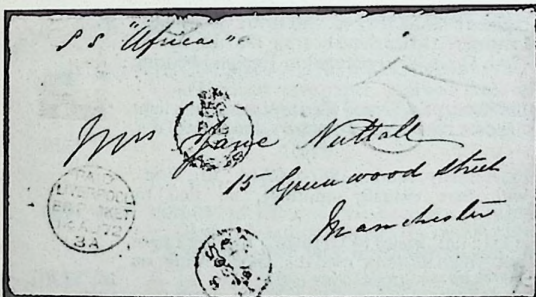 S S "Africa"
Mrs Jane Nuttall
15 Greenwood Street
Manchester
PAID
LIVERPOOL
BR. PACKET
3A